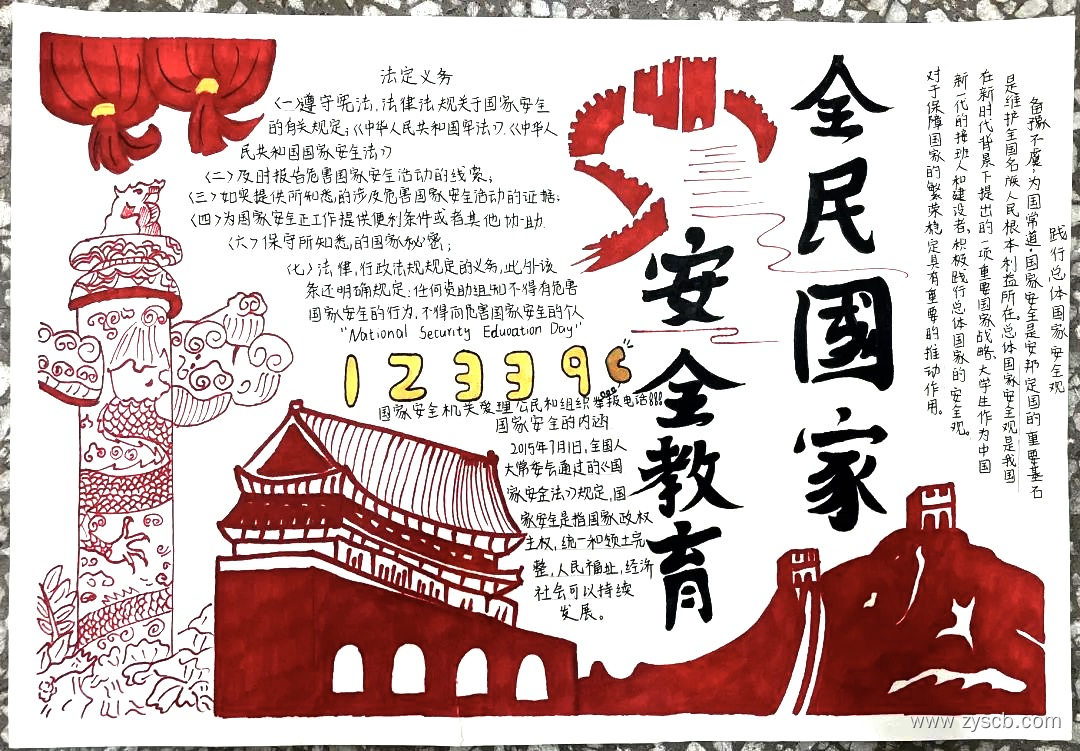 全民國家
安全教育
践行总体国家安全观
备豫不虞,为国常道。国家安全是安邦定国的重要基石
是维护全国各族人民根本利益所在。总体国家安全观是我国
在新时代背景下提出的一项重要国家战略,大学生作为中国
新一代的接班人和建设者,积极践行总体国家的安全观。
对于保障国家的繁荣稳定具有重要的推动作用。
法定义务
(一)遵守宪法,法律法规关于国家安全
的有关规定;《中华人民共和国宪法》《中华人
民共和国国家安全法》
(二)及时报告危害国家安全活动的线索;
(三)如实提供所知悉的涉及危害国家安全活动的证据;
(四)为国家安全工作提供便利条件或者其他协助.
(六)保守所知悉的国家秘密;
(七)法律,行政法规规定的义务,此外该
条还明确规定:任何资助组织不得有危害
国家安全的行为,不得向危害国家安全的个人
"National Security Eduoation Day"
12339
国家安全机关受理公民和组织举报电话
国家安全的内涵
2015年7月1日,全国人
大常委会通过的《国
家安全法》规定,国
家安全是指国家政权
主权,统一和领土完
整,人民福祉,经济
社会可以持续
发展。
www.zyscb.com